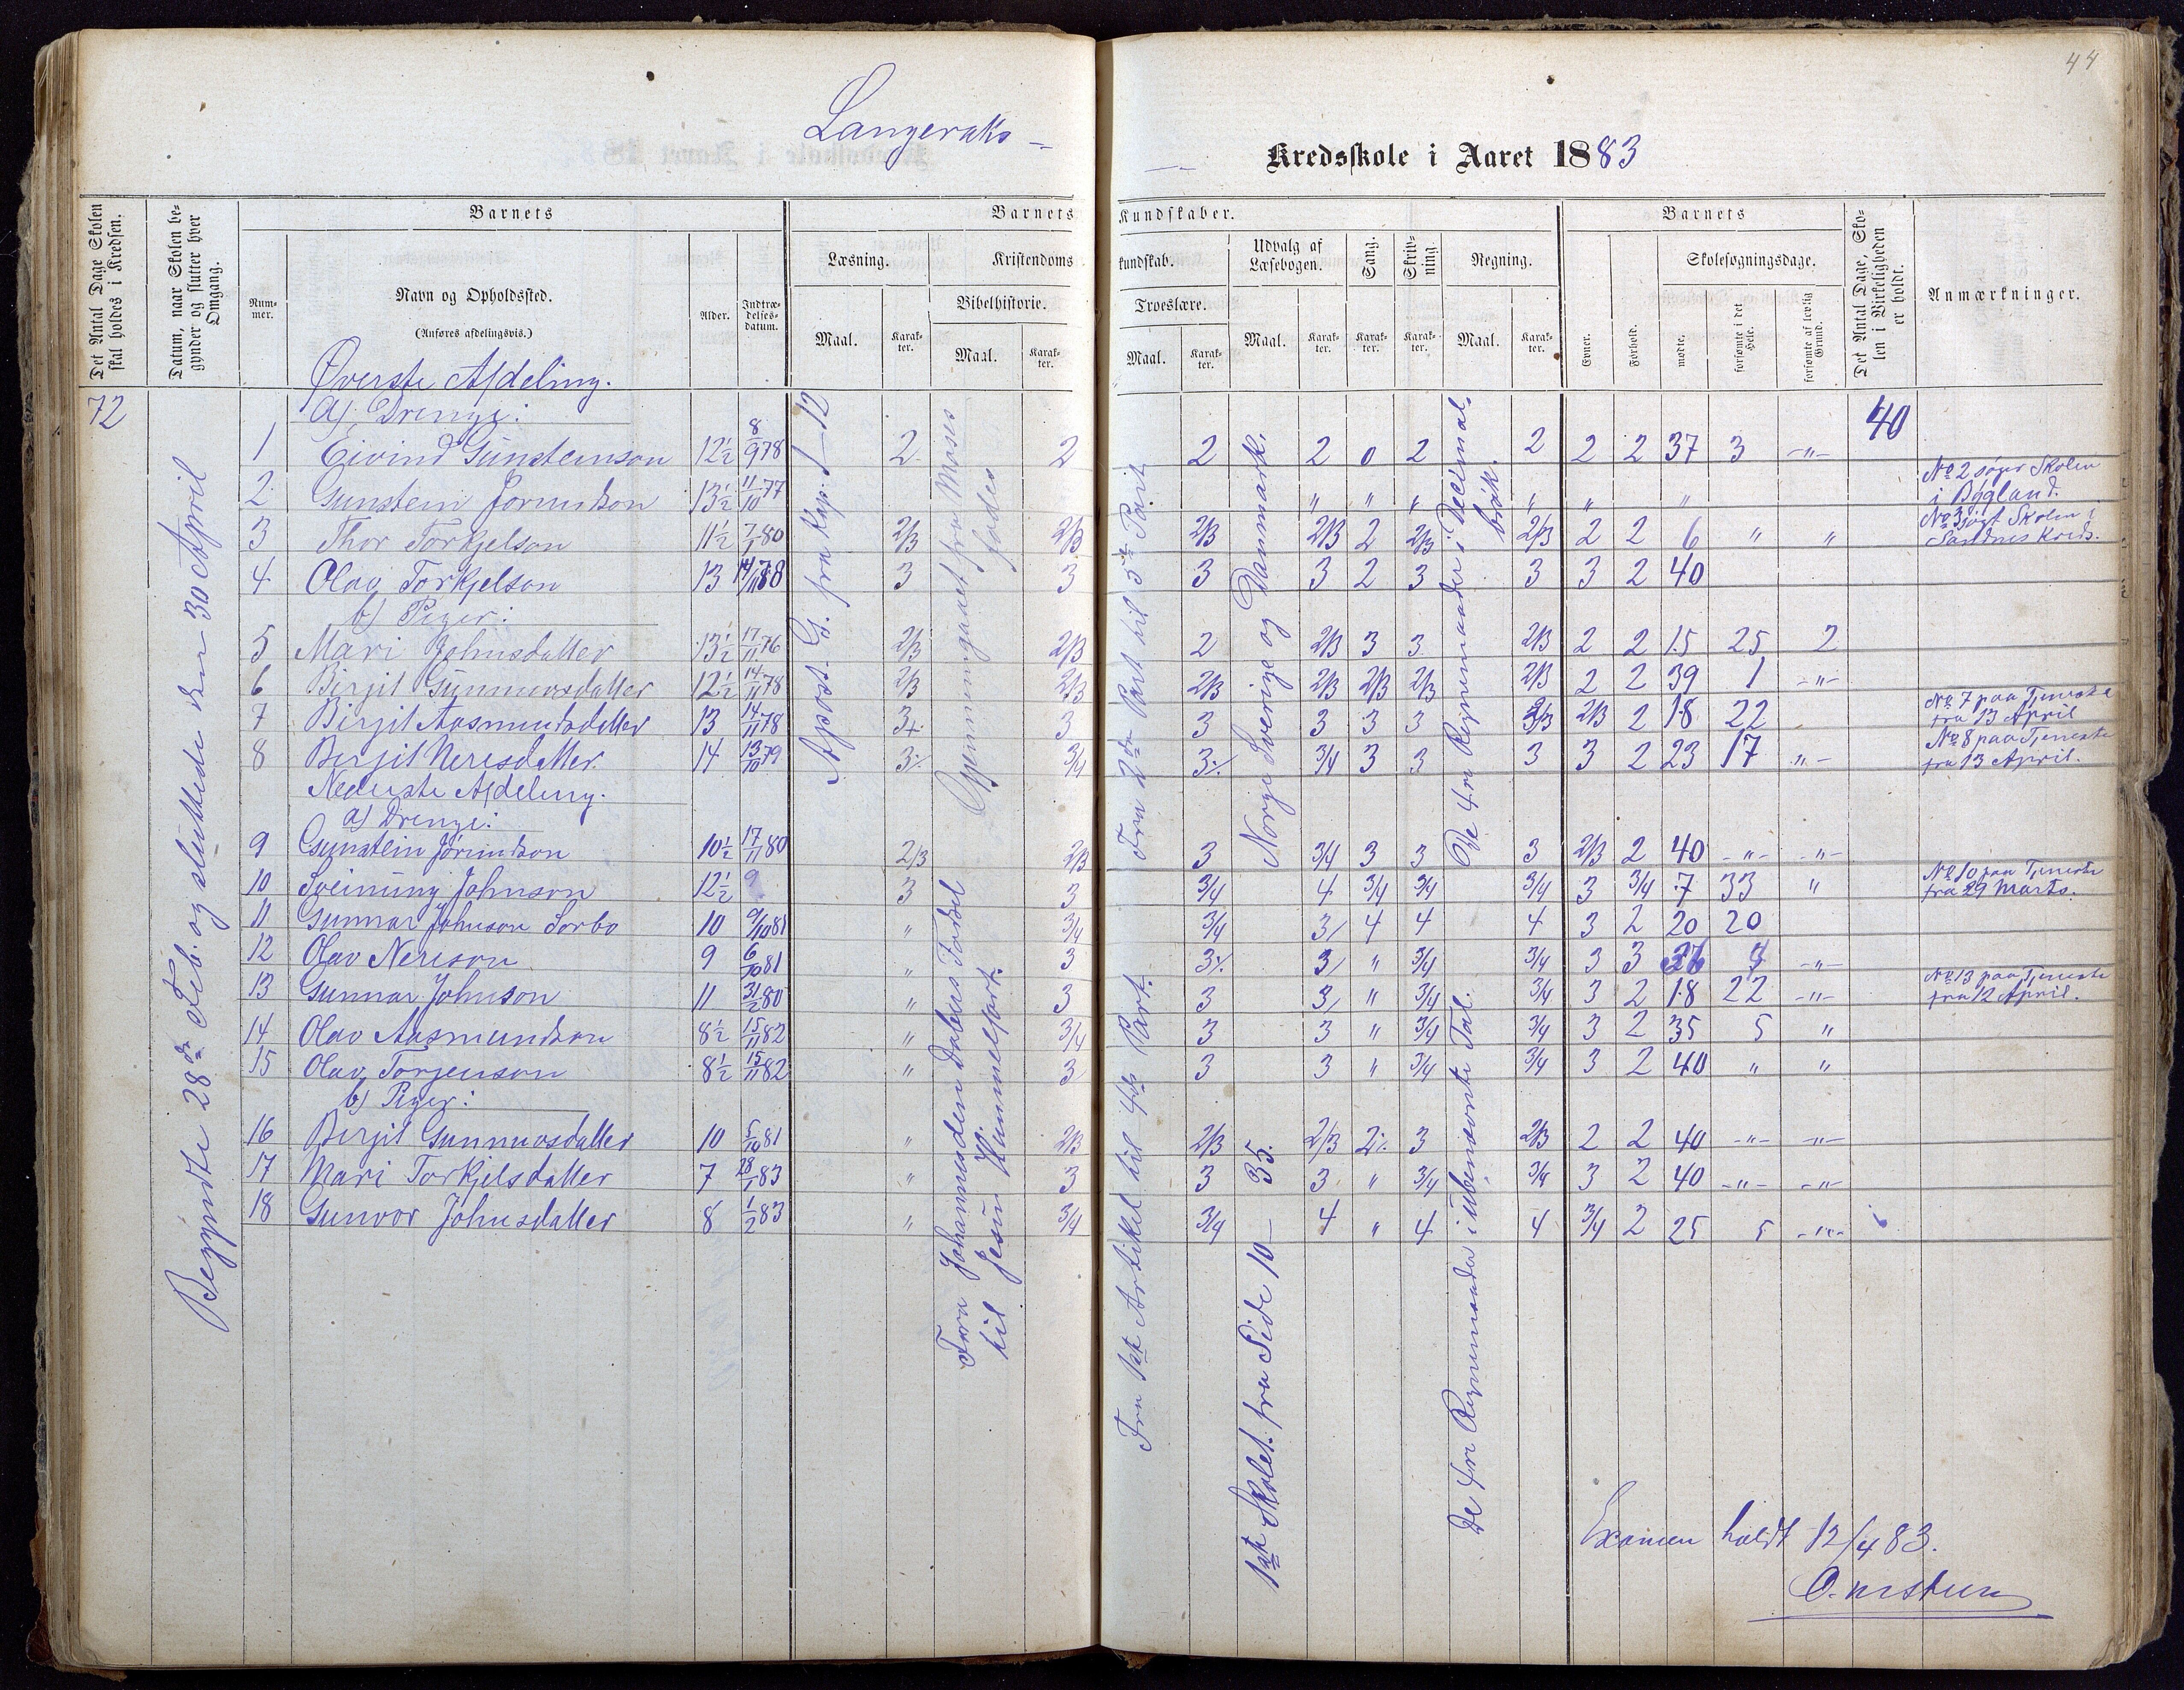 44
Langeraks -
Kredsskole i Aaret 1883
Det Antal Dage Skolen skal holdes i Kredsen.
Datum, naar Skolen begynder og slutter hver Omgang.
Barnets
Barnets
Kundskaber.
Barnets
Det Antal Dage, Skolen i Virkeligheden er holdt.
Anmærkninger.
Nummer.
Navn og Opholdssted.
(Anføres afdelingsvis.)
Alder.
Indtrædelsesdatum.
Læsning.
Kristendoms
kundskab.
Udvalg af Læsebogen.
Sang.
Skrivning.
Regning.
Evner.
Forhold.
Skolesøgningsdage.
Bibelhistorie.
Troeslære.
Maal.
Karakter.
Maal.
Karakter.
Maal.
Karakter.
Maal.
Karakter.
Karakter.
Karakter.
Maal.
Karakter.
mødte.
forsømte i det Hele.
forsømte af lovlig Grund.
72
Begyndte 28de Feb. og sluttede den 30 April
Apost. G. fra Kap. 1-12
Gjennemgaaet fra Moses fødes
Fra 2den Part til 3die Part
Norge Sverige og Danmark.
De fire Regnemaader i Decimalbrøk.
40
Øverste Afdeling.
a) Drenge:
1 Eivind Gunsteinson 12½ 8/9 78 2 2 2 2 0 2 2 2 2 37 3 -"-
2 Gunstein Jorundson 13½ 11/10 77 " " " " " "
No 2 søger Skolen
i Bygland.
3 Thor Torkjelson 11½ 7/1 80 2/3 2/3 2/3 2/3 2 2/3 2/3 2 2 6 " "
No 3 søgt Skolen i
Sandnes Kreds.
4 Olav Torkjelson 13 14/11 78 3 3 3 3 2 3 3 3 2 40
b) Piger:
5 Mari Johnsdatter 13½ 17/11 76 2/3 2/3 2 2/3 3 3 2/3 2 2 15 25 2
6 Birgit Gunnarsdatter 12½ 14/11 78 2/3 2/3 2/3 2/3 2/3 2/3 2/3 2 2 39 1 -"-
7 Birgit Aasmundsdatter 13 14/11 78 3+ 3 3 3 3 3 2/3 2/3 2 18 22
No 7 paa Tjeneste
fra 13 April
8 Birgit Neresdatter 14 13/10 79 3% 3/4 3% 3/4 3 3 3 3 2 23 17 "-
No 8 paa Tjeneste
fra 13 April.
Nederste Afdeling.
a) Drenge:
9 Gunstein Jorundson 10½ 17/11 80 2/3 2/3 3 3/4 3 3 3 2/3 2 40 -"- -"-
10 Sveinung Johnson 12½ 9 3 3 3/4 4 3/4 3/4 3/4 3 3/4 7 33 "
No 10 paa Tjeneste
fra 29 Marts.
11 Gunnar Johnson Sorbo 10 9/10 81 " 3/4 3/4 3/ 4 4 4 3 2 20 20
12 Olav Nereson 9 6/10 81 " 3 3% 3/ " 3/4 3/4 3 3 36 4 -"-
13 Gunnar Johnson 11 31/2 80 " 3 3 3/ " 3/4 3/4 3 2 18 22 -"-
No 13 paa Tjeneste
fra 12 April.
14 Olav Aasmundson 8½ 15/11 82 " 3/4 3 3 " 3/4 3/4 3 2 35 5 "
15 Olav Torjenson 8½ 15/11 82 " 3 3 3 " 3/4 3/4 3 2 40 " "
b) Piger:
16 Birgit Gunnarsdatter 10 5/10 81 " 2/3 2/3 2/3 2% 3 2/3 2 2 40 -"- -"-
17 Mari Torkjelsdatter 7 28/1 83 " 3 3 3 " 3/4 3/4 3 2 40 -"- -"-
18 Gunvor Johnsdatter 8 1/2 83 " 3/4 3/4 4 " 4 4 3/4 2 25 5 -"-
Fra Johannes den Døbers Fødsel
til Jesu Himmelfart.
Fra 1ste Artikel til 4de Part.
1ste Skolet. fra Side 10 - 35.
De fire Regnemaader i Ubenævnte Tal.
Examen holdt 12/4 83.